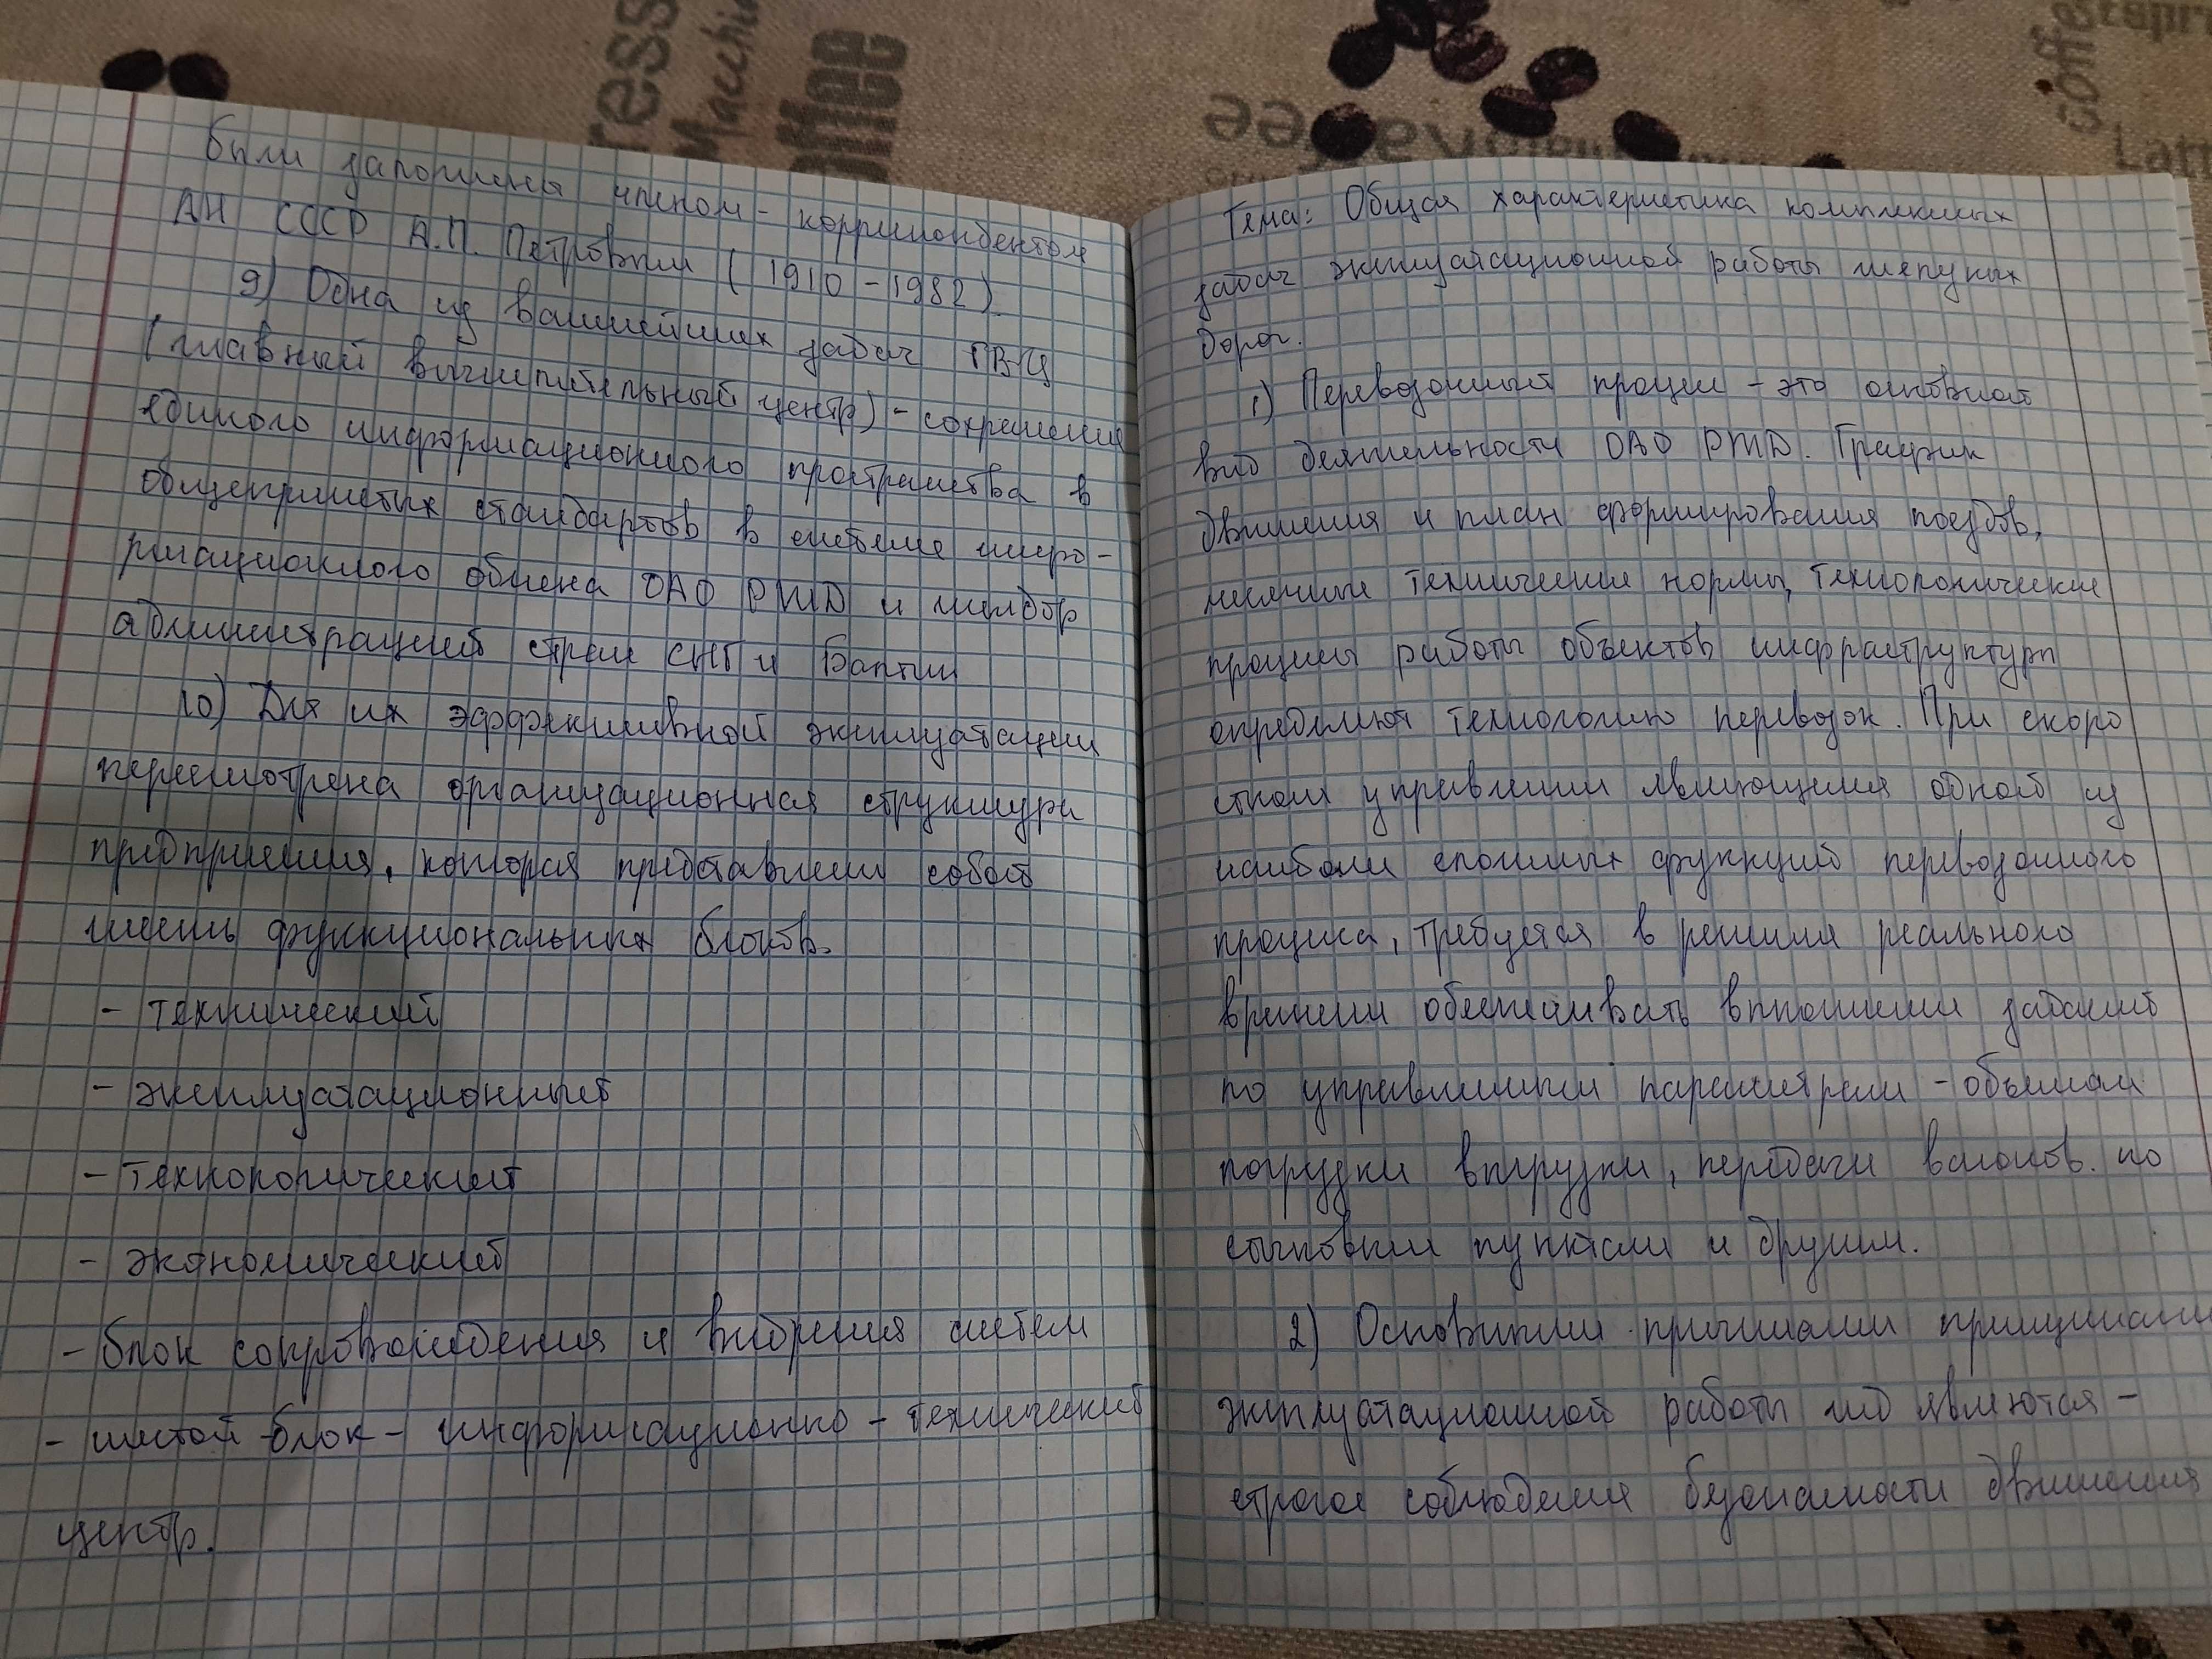 были заложены членом-корреспондентом
АН СССР А.П. Петровым (1910-1982).
9) Одна из важнейших задач ГВЦ
(главный вычислительный центр) - сохранение
единого информационного пространства в
общепринятых стандартов в системе инфо-
рмационного обмена ОАО РЖД и
администраций стран СНГ и Балтии
10) Для их эффективной эксплуатации
пересмотрена организационная структура
предприятия, которая представляет собой
шесть функциональных блоков.
- технический
- эксплуатационный
- технологический
- экономический
- блок сопровождения и внедрения систем
- шестой блок - информационно-технический
центр.
Тема: Общая характеристика комплексных
задач эксплуатационной работы железных
дорог.
1) Перевозочный процесс - это основной
вид деятельности ОАО РЖД. График
движения и план формирования поездов,
месячные технические нормы, технологические
процессы работы объектов инфраструктуры
определяют технологию перевозок. При скоро
стном управлении являющемся одной из
наиболее сложных функций перевозочного
процесса, требуется в режиме реального
времени обеспечивать выполнение заданий
по управляемым параметрам - объемам
погрузки выгрузки, передачи вагонов по
стыковым пунктам и другим.
2) Основными принципами
эксплуатационной работы жд являются -
строгое соблюдение безопасности движения
coffee
Macchia
Latt